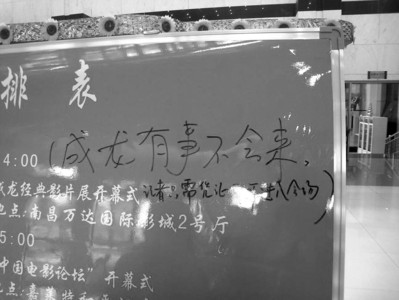 排 表
4:00 (成龙有事不会来,
成龙经典影片展开幕式 记者 需凭 )
点:南昌万达国际影城2号厅
5:00
中国电影论坛”开幕式
点:嘉莱特和平